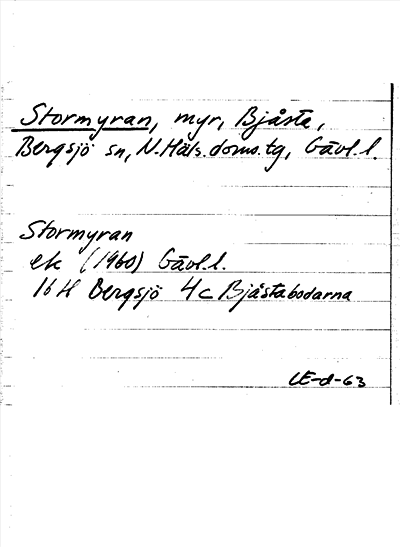 Stormyran, myr, Bjåsta,
Bergsjö sn, N. Häls. doms. tg, Gävl. l.
Stormyran
ek (1960) Gävl. l.
16 H Bergsjö 4c Bjåstabodarna
LE-d-63